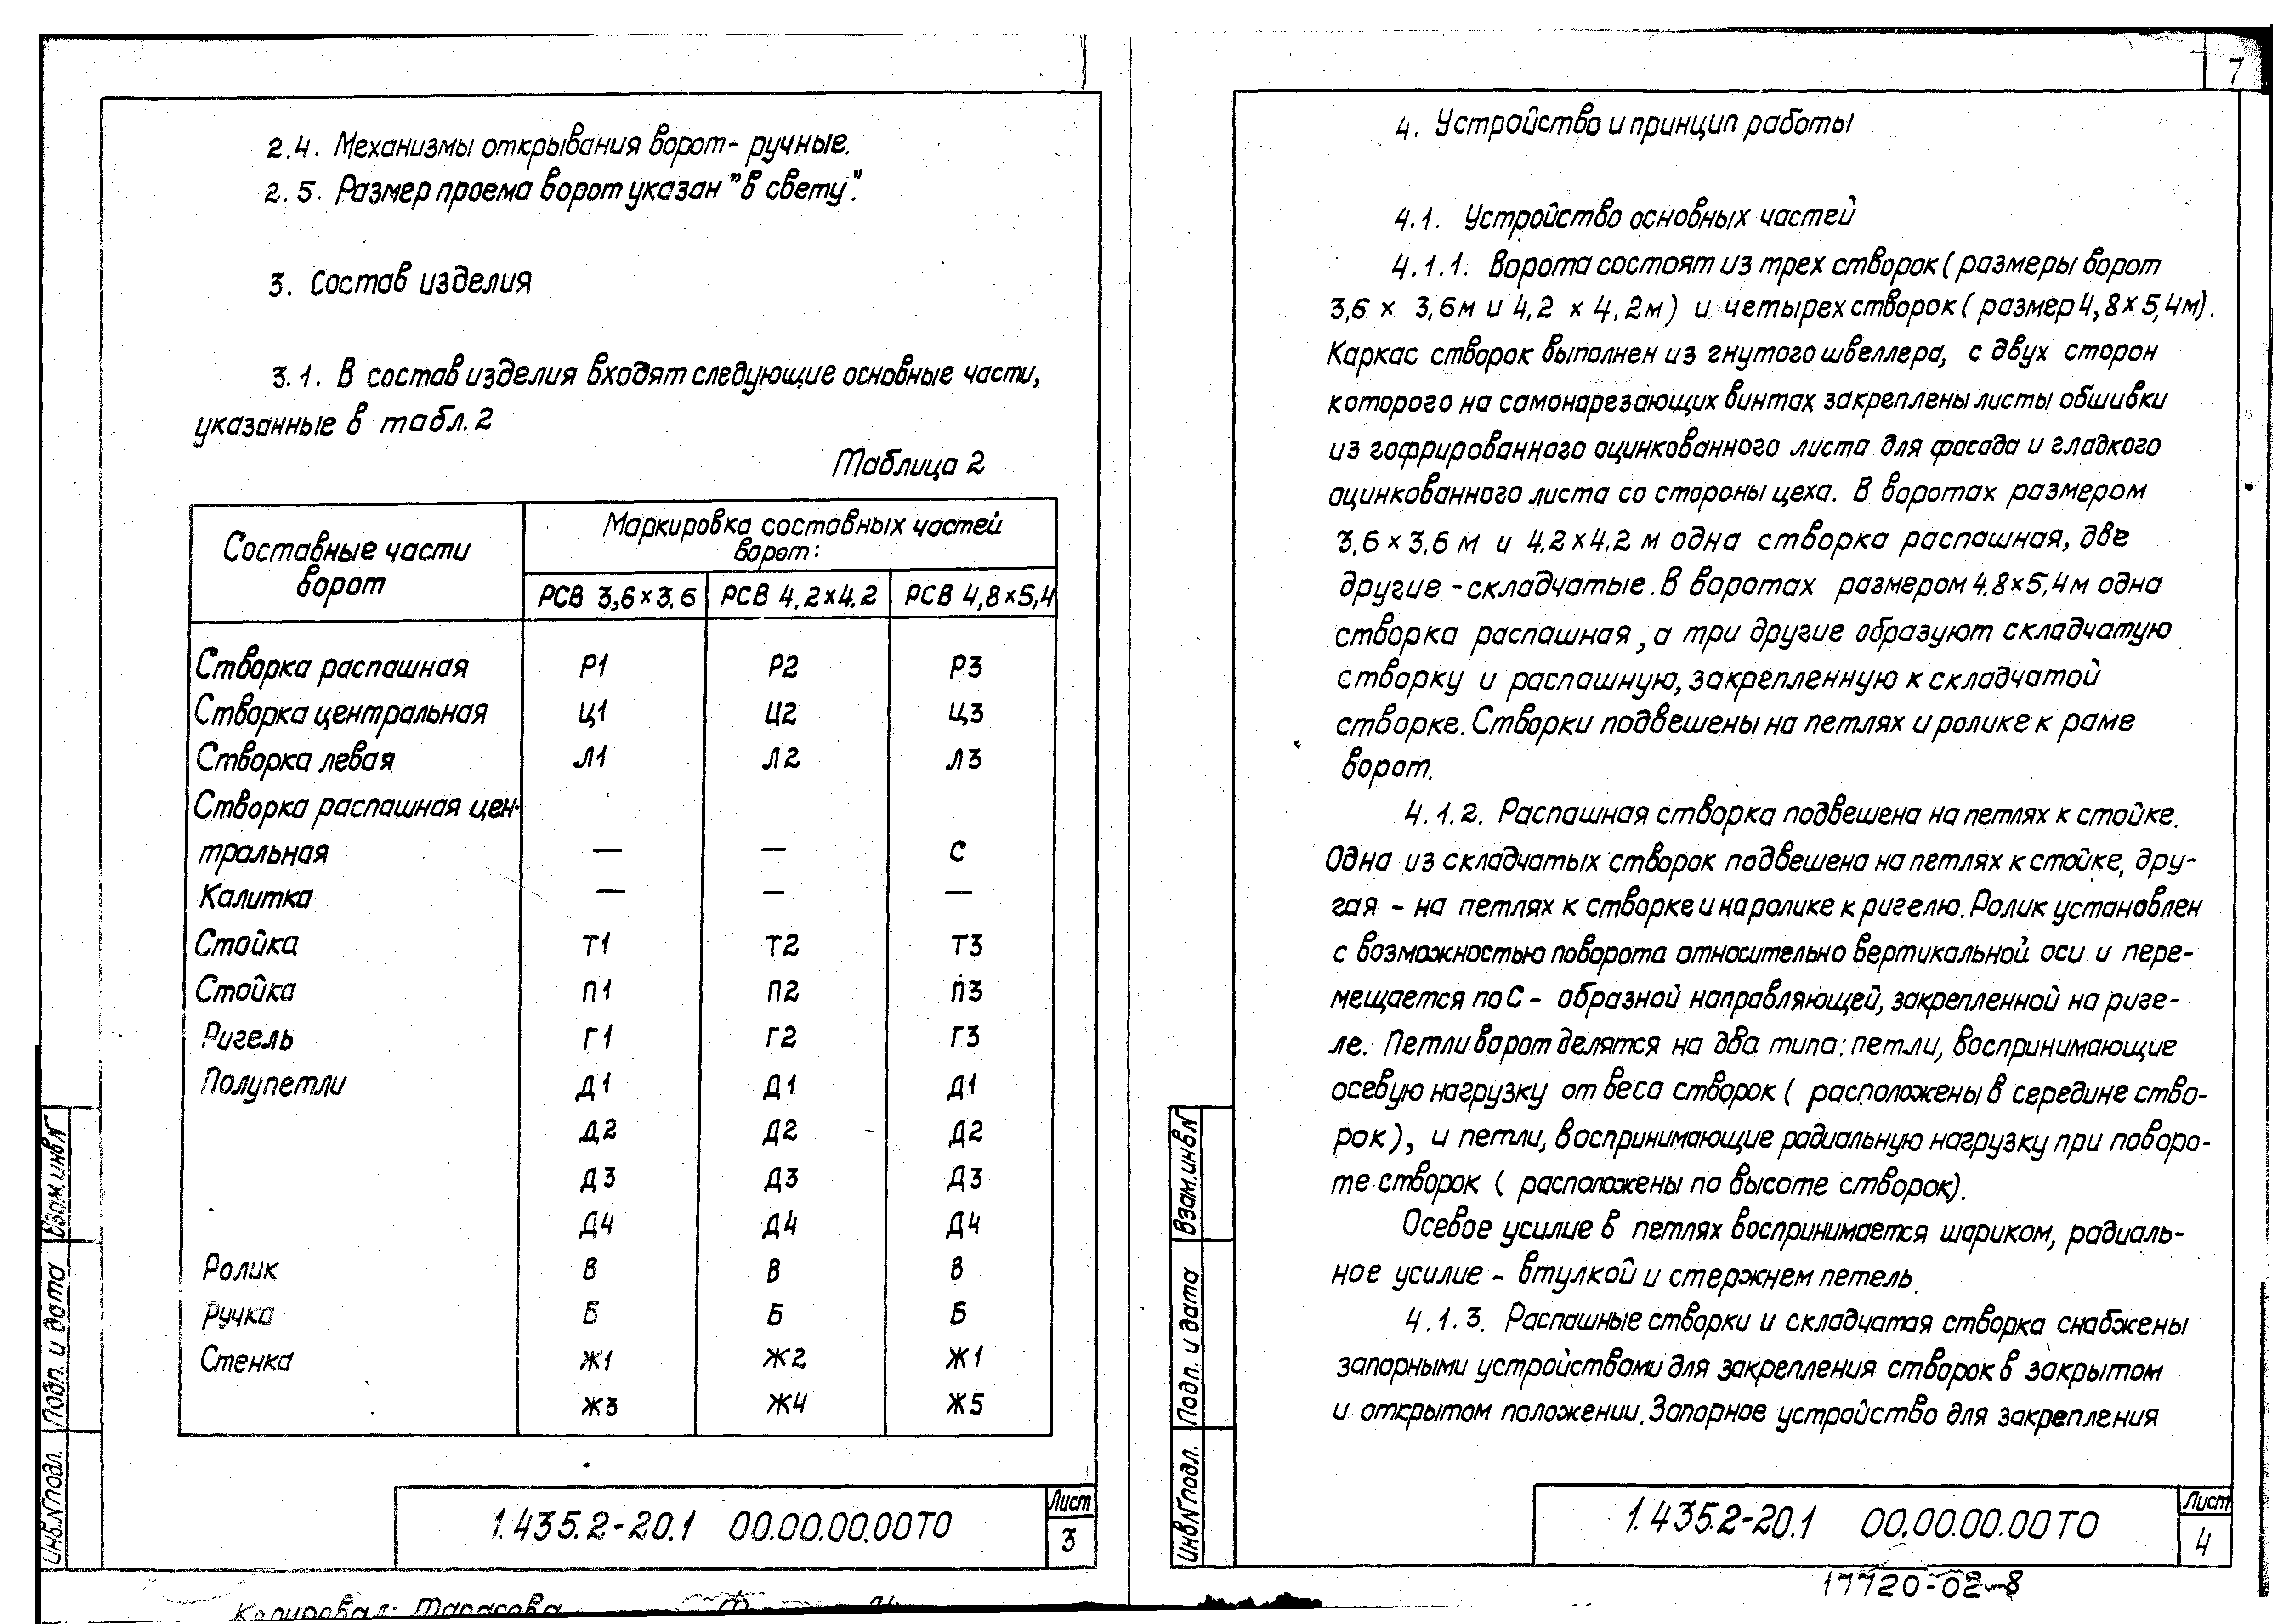 2.4. Механизмы открывания ворот- ручные.
2.5. Размер проема ворот указан "в свету".
3. Состав изделия
3.1. В состав изделия входят следующие основные части,
указанные в табл. 2
Таблица 2
Составные части ворот
Маркировка составных частей ворот:
РСВ 3,6×3.6 РСВ 4.2×4.2 РСВ 4,8×5,4
Створка распашная Р1 Р2 Р3
Створка центральная Ц1 Ц2 Ц3
Створка левая Л1 Л2 Л3
Створка распашная цен-
тральная — — С
Калитка — — —
Стойка Т1 Т2 Т3
Стойка П1 П2 П3
Ригель Г1 Г2 Г3
Полупетли Д1 Д1 Д1
Д2 Д2 Д2
Д3 Д3 Д3
Д4 Д4 Д4
Ролик В В В
Ручка Б Б Б
Стенка Ж1 Ж2 Ж1
Ж3 Ж4 Ж5
Взам. инв.N
Подп. и дата
Инв.N подл.
1.435.2-20.1 00.00.00.00ТО
Лист
3
Копировал: Тарасова
7
4. Устройство и принцип работы
4.1. Устройство основных частей
4.1.1. Ворота состоят из трех створок ( размеры ворот
3,6 × 3,6м и 4,2 × 4.2м) и четырех створок ( размер 4,8×5,4м).
Каркас створок выполнен из гнутого швеллера, с двух сторон
которого на самонарезающих винтах закреплены листы обшивки
из гофрированного оцинкованного листа для фасада и гладкого
оцинкованного листа со стороны цеха. В воротах размером
3,6×3,6 м и 4.2×4.2 м одна створка распашная, две
другие - складчатые. В воротах размером 4.8×5,4м одна
створка распашная, а три другие образуют складчатую
створку и распашную, закрепленную к складчатой
створке. Створки подвешены на петлях и ролике к раме
ворот.
4.1.2. Распашная створка подвешена на петлях к стойке.
Одна из складчатых створок подвешена на петлях к стойке, дру-
гая - на петлях к створке и на ролике к ригелю. Ролик установлен
с возможностью поворота относительно вертикальной оси и пере-
мещается по С - образной направляющей, закрепленной на риге-
ле. Петли ворот делятся на два типа: петли, воспринимающие
осевую нагрузку от веса створок ( расположены в середине ство-
рок), и петли, воспринимающие радиальную нагрузку при поворо-
те створок ( расположены по высоте створок).
Осевое усилие в петлях воспринимается шариком, радиаль-
ное усилие - втулкой и стержнем петель.
4.1.3. Распашные створки и складчатая створка снабжены
запорными устройствами для закрепления створок в закрытом
и открытом положении. Запорное устройство для закрепления
Взам. инв.N
Подп. и дата
Инв.N подл.
1.435.2-20.1 00.00.00.00ТО
Лист
4
17720-02-8